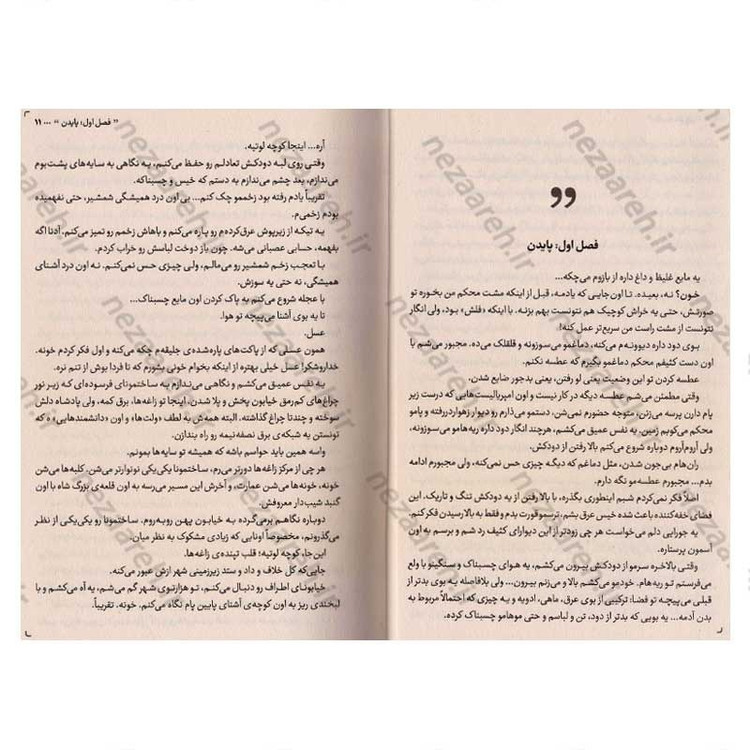 ”
فصل اول: پایدن
یه مایع غلیظ و داغ داره از بازوم می‌چکه...
خون؟ نه، بعیده. تا اون‌جایی که یادمه، قبل از اینکه مشت محکم من بخوره تو
صورتش، حتی یه خراش کوچیک هم نتونست بهم بزنه. با اینکه «فلش» بود، ولی انگار
نتونست از مشت راست من سریع‌تر عمل کنه!
بوی دود داره دیوونه‌م می‌کنه، دماغمو می‌سوزونه و قلقلک می‌ده. مجبور می‌شم با
اون دست کثیفم محکم دماغمو بگیرم که عطسه نکنم.
عطسه کردن تو این وضعیت یعنی لو رفتن، یعنی بدجور ضایع شدن.
وقتی مطمئن می‌شم عطسه دیگه در کار نیست و اون امپریالیست‌هایی که درست زیر
پام دارن پرسه می‌زنن، متوجه حضورم نمی‌شن، دستمو می‌ذارم رو دیوار زهواردررفته و پامو
محکم می‌کوبم زمین. یه نفس عمیق می‌کشم، هرچند انگار دود داره ریه‌هامو می‌سوزونه،
ولی آروم‌آروم دوباره شروع می‌کنم بالا رفتن از دودکش.
ران‌هام بی‌جون شدن، مثل دماغم که دیگه چیزی حس نمی‌کنه، ولی مجبورم ادامه
بدم... مجبورم عطسه‌مو نگه دارم.
اصلاً فکر نمی‌کردم شبم اینطوری بگذره، با بالا رفتن از یه دودکش تنگ و تاریک. این
فضای خفه‌کننده باعث شده خیس عرق بشم، ترسمو قورت بدم و فقط به بالا رسیدن فکر کنم.
یه جورایی دلم می‌خواست هر چی زودتر از این دیوارای کثیف رد شم و برسم به اون
آسمون پرستاره.
وقتی بالاخره سرمو از دودکش بیرون می‌کشم، یه هوای چسبناک و سنگینو با ولع
می‌فرستم تو ریه‌هام. خودمو می‌کشم بالا و می‌زنم بیرون... ولی بلافاصله یه بوی بدتر از
قبلی می‌پیچه تو فضا؛ ترکیبی از بوی عرق، ماهی، ادویه و یه چیزی که احتمالاً مربوط به
بدن آدمه... یه بویی که بدتر از دود، تن و لباسم و حتی موهامو چسبناک کرده.
” فصل اول: پایدن “ ... ۱۱
آره... اینجا کوچه لوتیه.
وقتی روی لبه دودکش تعادلم رو حفظ می‌کنم، یه نگاهی به سایه‌های پشت‌بوم
می‌ندازم، بعد چشم می‌ندازم به دستم که خیس و چسبناکه.
تقریباً یادم رفته بود زخممو چک کنم... بی اون درد همیشگی شمشیر، حتی نفهمیده
بودم زخمی‌م.
یه تیکه از زیرپوش عرق‌کرده‌م رو پاره می‌کنم و باهاش زخمم رو تمیز می‌کنم. آدنا اگه
بفهمه، حسابی عصبانی می‌شه. چون باز دوخت لباسش رو خراب کردم.
با تعجب زخم شمشیر رو می‌مالم، ولی چیزی حس نمی‌کنم. نه اون درد آشنای
همیشگی، نه حتی یه سوزش.
با عجله شروع می‌کنم به پاک کردن اون مایع چسبناک...
تا یه بوی آشنا می‌پیچه تو هوا.
عسل.
همون عسلی که از پاکت‌های پاره‌شده‌ی جلیقه‌م چکه می‌کنه و اول فکر کردم خونه.
خداروشکر! عسل خیلی بهتره از اینکه بخوام خونی بشورم که تا فردا بوش از تنم نره.
یه نفس عمیق می‌کشم و نگاهی می‌ندازم به ساختمونای فرسوده‌ای که زیر نور
چراغ‌های کم‌رمق خیابون پخش و پلا شدن. اینجا تو زاغه‌ها، برق کمه، ولی پادشاه دلش
سوخته و چندتا چراغ گذاشته. البته همه‌ش به لطف «ولت‌ها» و اون «دانشمندهایی» که
تونستن یه شبکه‌ی برق نصفه‌نیمه رو راه بندازن.
واسه همین باید حواسم باشه که همیشه تو سایه‌ها بمونم.
هر چی از مرکز زاغه‌ها دورتر می‌رم، ساختمونا یکی‌یکی نونوارتر می‌شن. کلبه‌ها می‌شن
خونه، خونه‌ها می‌شن عمارت، و آخرش این مسیر می‌رسه به اون قلعه‌ی بزرگ شاه با اون
گنبد شیب‌دار معروفش.
دوباره نگاهم برمی‌گرده به خیابون پهن روبه‌روم. ساختمونا رو یکی‌یکی از نظر
می‌گذرونم، مخصوصاً اونایی که زیادی مشکوک به نظر میان.
این‌جا، کوچه لوتیه؛ قلب تپنده‌ی زاغه‌ها.
جایی‌که کل خلاف و داد و ستد زیرزمینی شهر ازش عبور می‌کنه.
خیابونای اطراف رو دنبال می‌کنم، تو هزارتوی شهر گم می‌شم، یه آه می‌کشم و با
لبخندی ریز به اون کوچه‌ی آشنای پایین پام نگاه می‌کنم. خونه. تقریباً.
nezaareh.ir